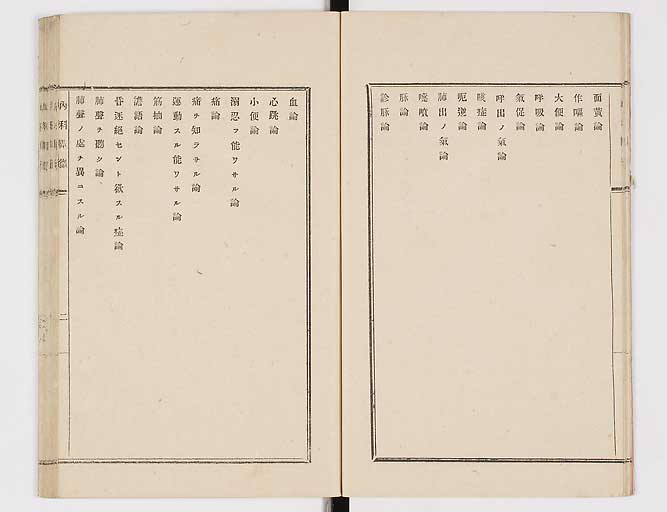 面黄論
作嘔論
大便論
呼吸論
氣促論
呼出ノ氣論
咳症論
呃逆論
肺出ノ氣論
噴論
脉論
診脉論
血論
心跳論
小便論
溺忍フ能ワサル論
痛論
痛チ知ラサル論
運動スル能ワサル論
筋抽論
譫語論
昏迷絕セント欲スル症論
肺聲チ聽ク論
肺聲ノ處チ異コスル論
內科
二